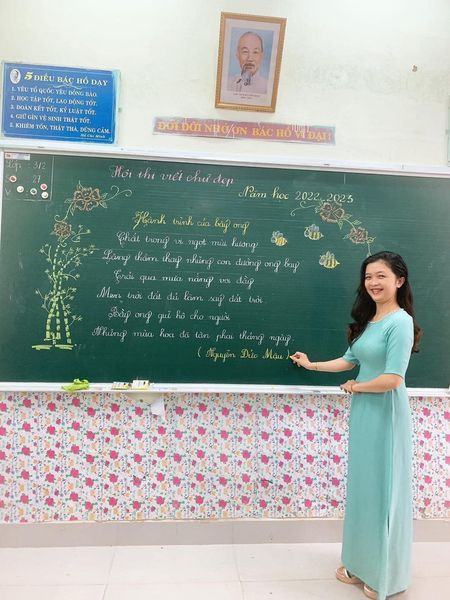 5 ĐIỀU BÁC HỒ DẠY
1. YÊU TỔ QUỐC YÊU ĐỒNG BÀO.
2. HỌC TẬP TỐT, LAO ĐỘNG TỐT.
3. ĐOÀN KẾT TỐT, KỶ LUẬT TỐT.
4. GIỮ GÌN VỆ SINH THẬT TỐT.
5. KHIÊM TỐN, THẬT THÀ, DŨNG CẢM.
Hồ Chí Minh
ĐỜI ĐỜI NHỚ ƠN BÁC HỒ VĨ ĐẠI!
Lớp: 3/2
27
V
Hội thi viết chữ đẹp
Năm học 2022_2023
Hành trình của bầy ong
Chất trong vị ngọt mùi hương
Lặng thầm thay những con đường ong bay
Trải qua mưa nắng vơi đầy
Men trời đất đủ làm say đất trời
Bầy ong giữ hộ cho người
Những mùa hoa đã tàn phai tháng ngày.
(Nguyễn Đức Mậu)